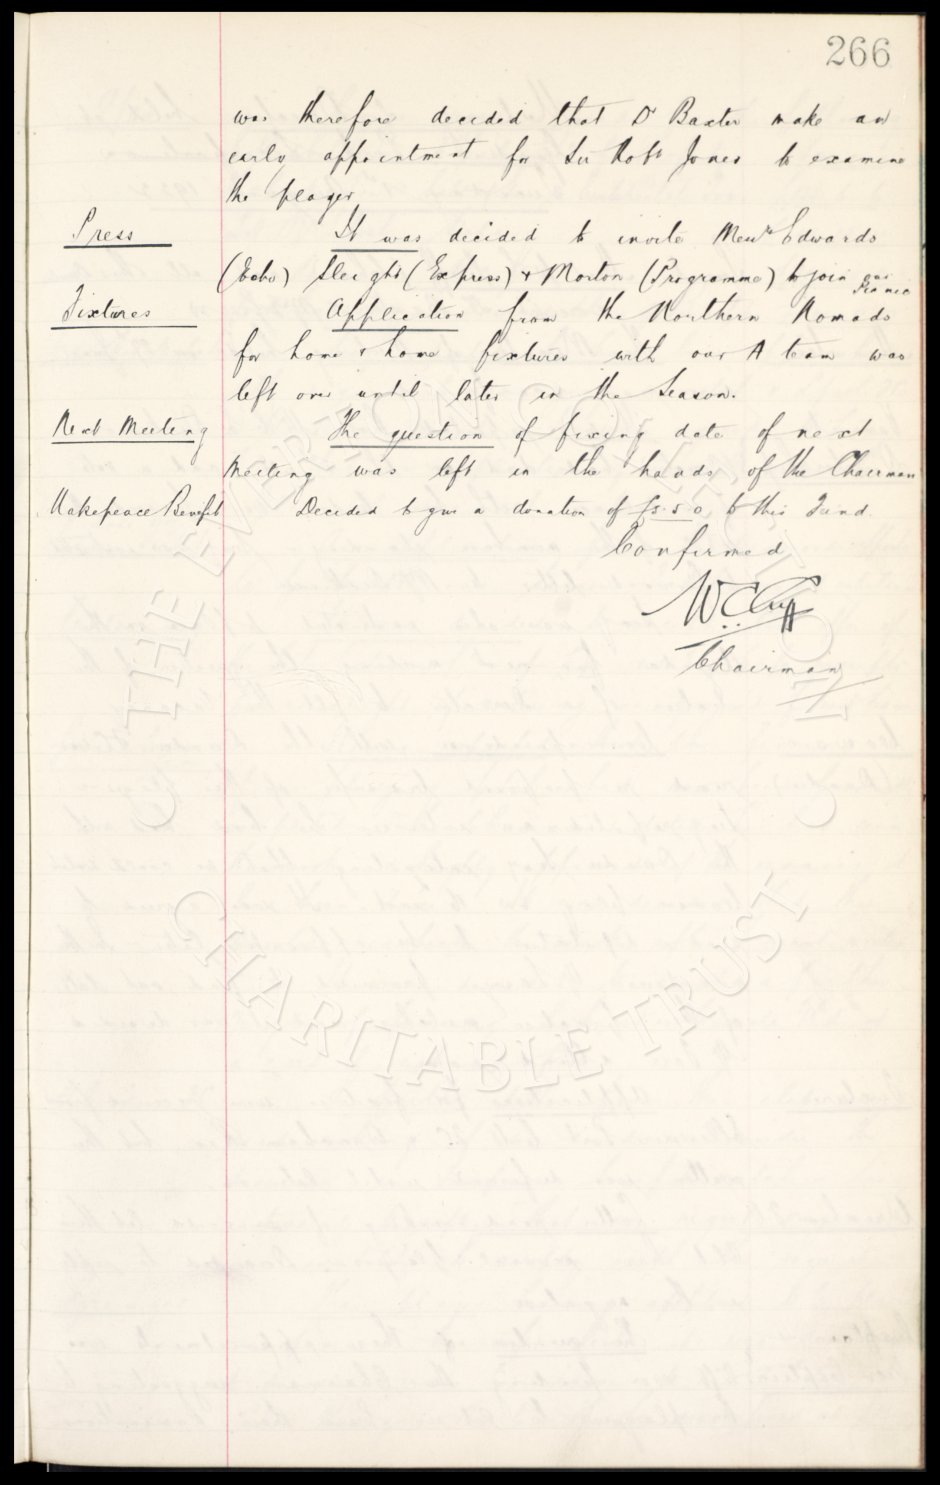 266
was therefore decided that Dr Baxter make an
early appointment for Sir Robt Jones to examine
the player
Press
It was decided to invite Messrs Edwards
(Echo) Sleight (Express) & Morton (Programme) to join our
Picnic
Fixtures
Application from the Northern Nomads
for home & home fixtures with our A team was
left over until later in the Season.
Next Meeting
The question of fixing date of next
Meeting was left in the hands of the Chairman
Makepeace Benefit
Decided to give a donation of £5.5.0 to this Fund
Confirmed
W.C. Cuff
Chairman
© THE EVERTON COLLECTION
CHARITABLE TRUST